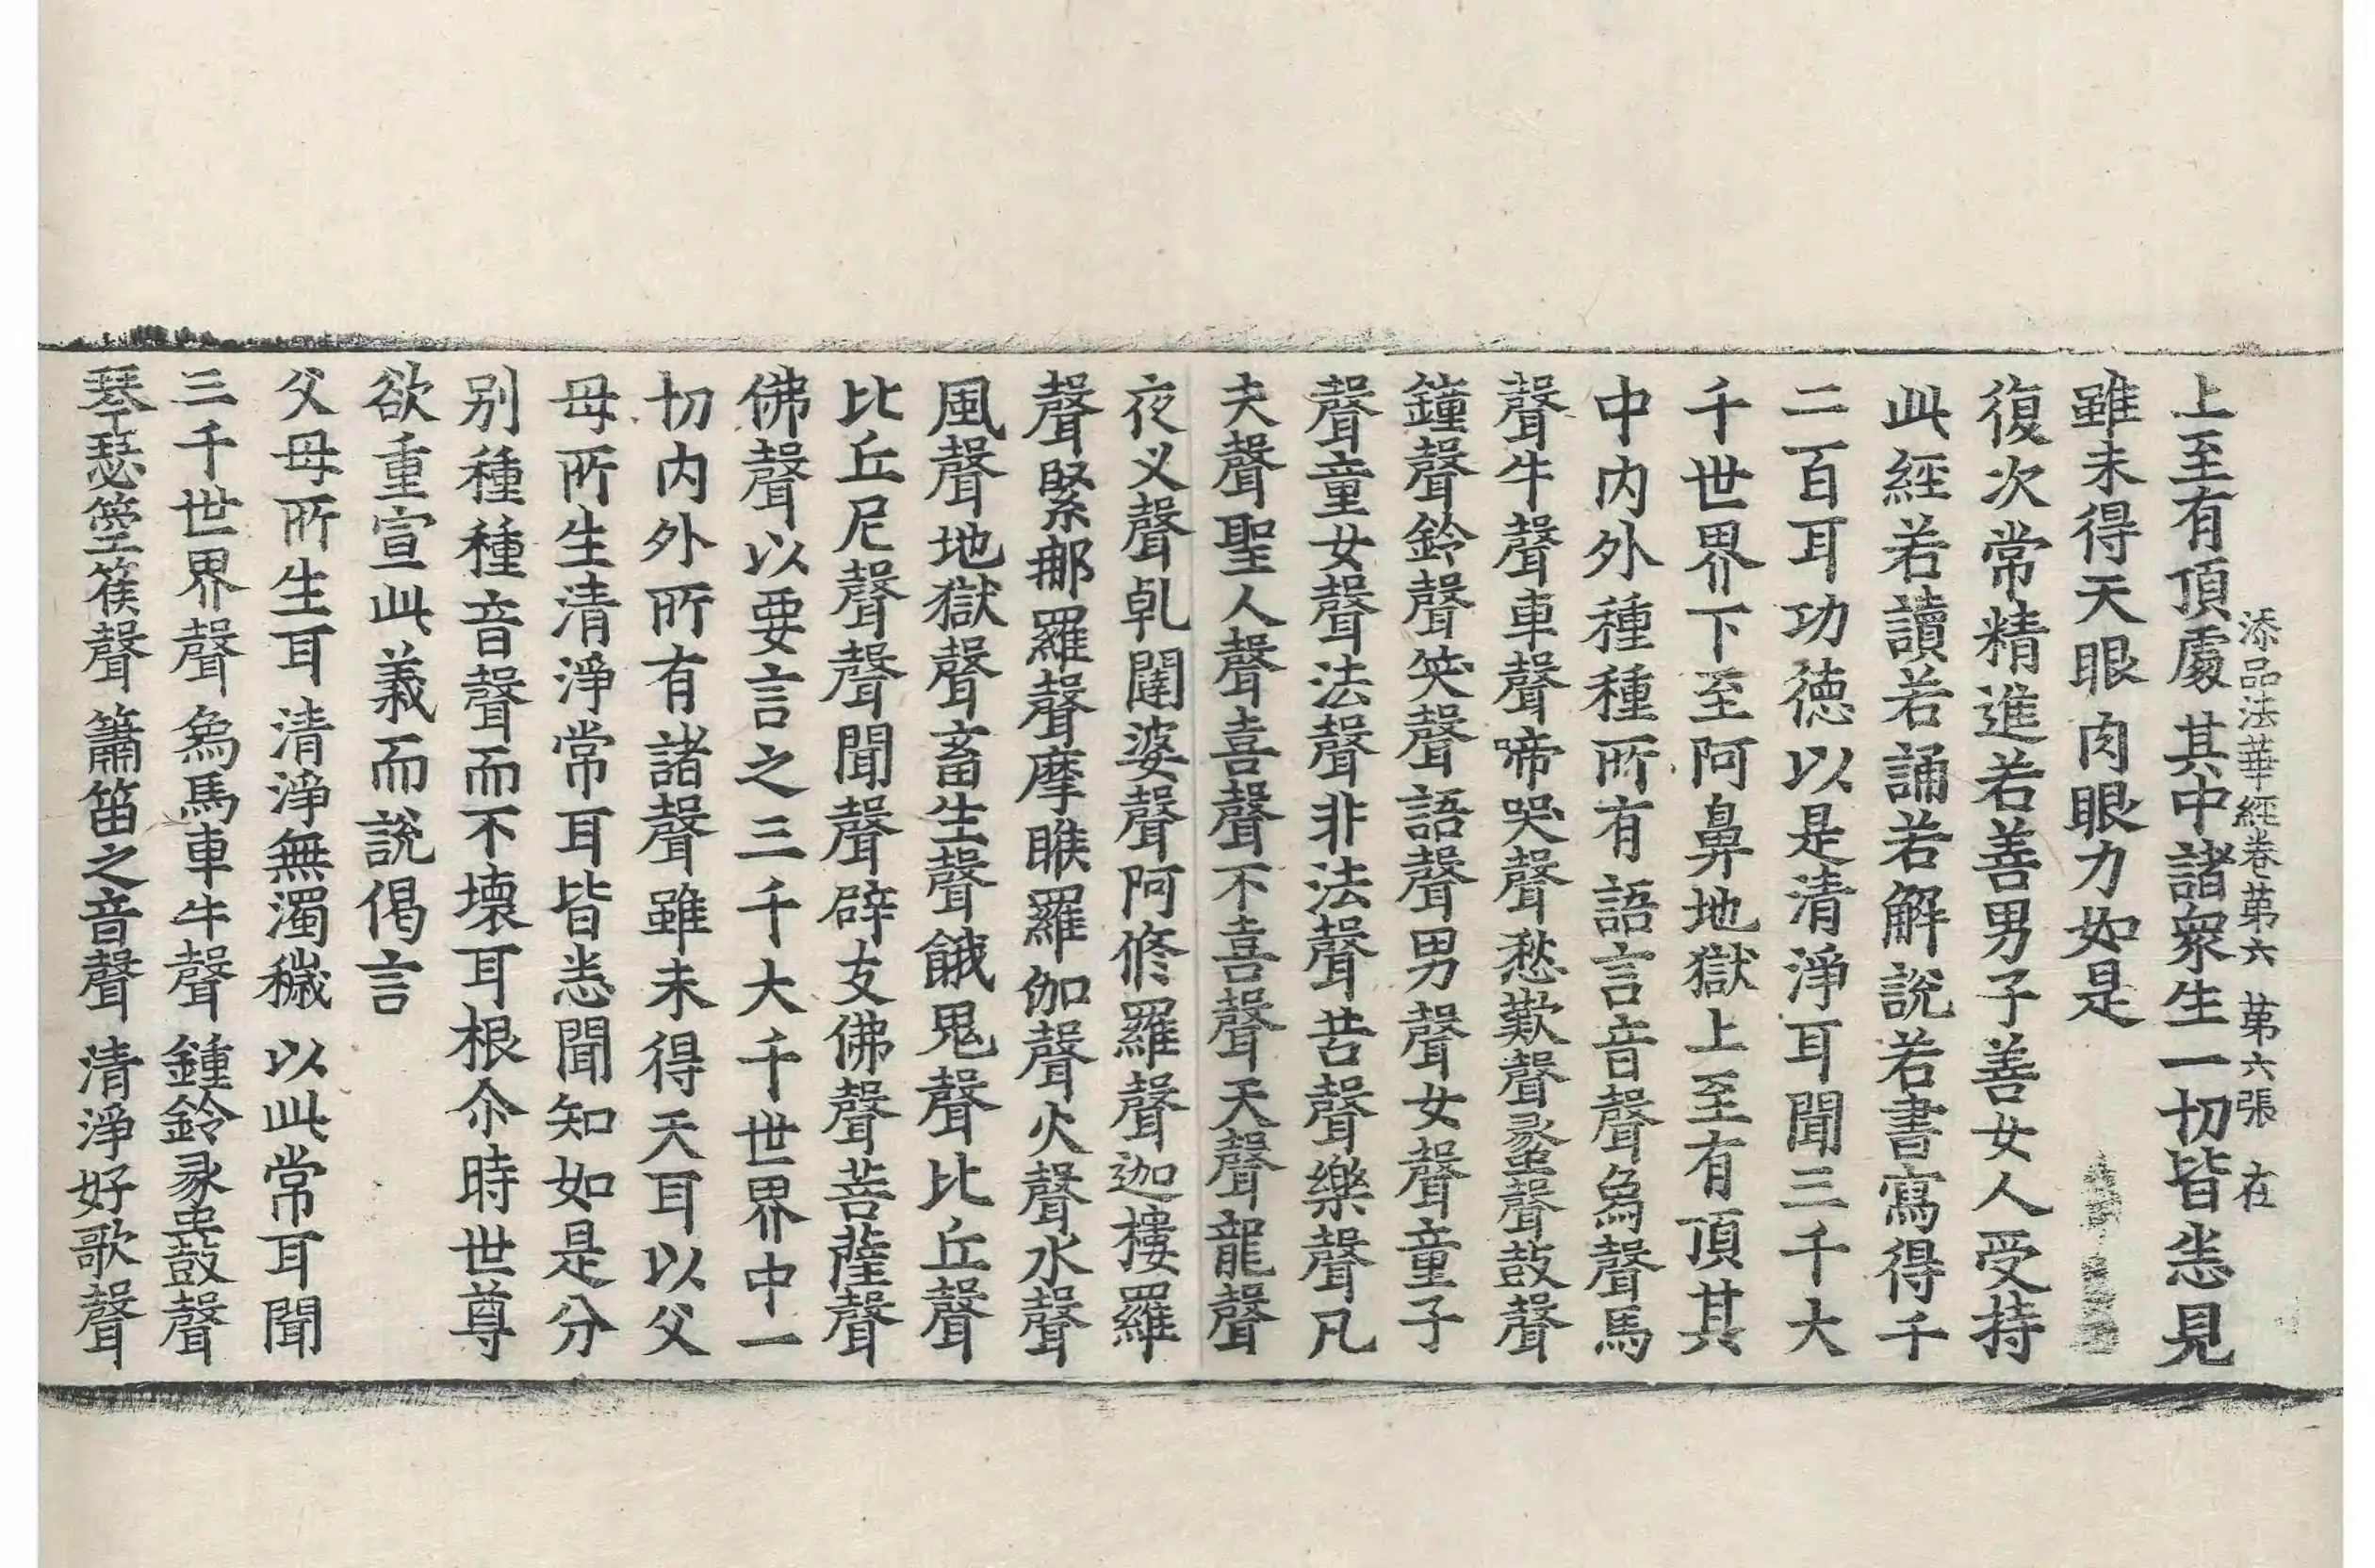 添品法華經卷苐六 苐六張 在
上至有頂處 其中諸衆生 一切皆悉見
雖未得天眼 肉眼力如是
復次常精進若善男子善女人受持
此經若讀若誦若解說若書寫得千
二百耳功德以是清淨耳聞三千大
千世界下至阿鼻地獄上至有頂其
中內外種種所有語言音聲爲聲馬
聲牛聲車聲啼哭聲愁歎聲䗍聲鼓聲
鐘聲鈴聲笑聲語聲男聲女聲童子
聲童女聲法聲非法聲苦聲樂聲凡
夫聲聖人聲喜聲不喜聲天聲龍聲
夜叉聲乹闥婆聲阿修羅聲迦樓羅
聲緊那羅聲摩睺羅伽聲火聲水聲
風聲地獄聲畜生聲餓鬼聲比丘聲
比丘尼聲聲聞聲辟支佛聲菩薩聲
佛聲以要言之三千大千世界中一
切內外所有諸聲雖未得天耳以父
母所生清淨常耳皆悉聞知如是分
別種種音聲而不壞耳根尒時世尊
欲重宣此義而說偈言
父母所生耳 清淨無濁穢 以此常耳聞
三千世界聲 爲馬車牛聲 鍾鈴䗍鼓聲
琴瑟箜篌聲 簫笛之音聲 清淨好歌聲